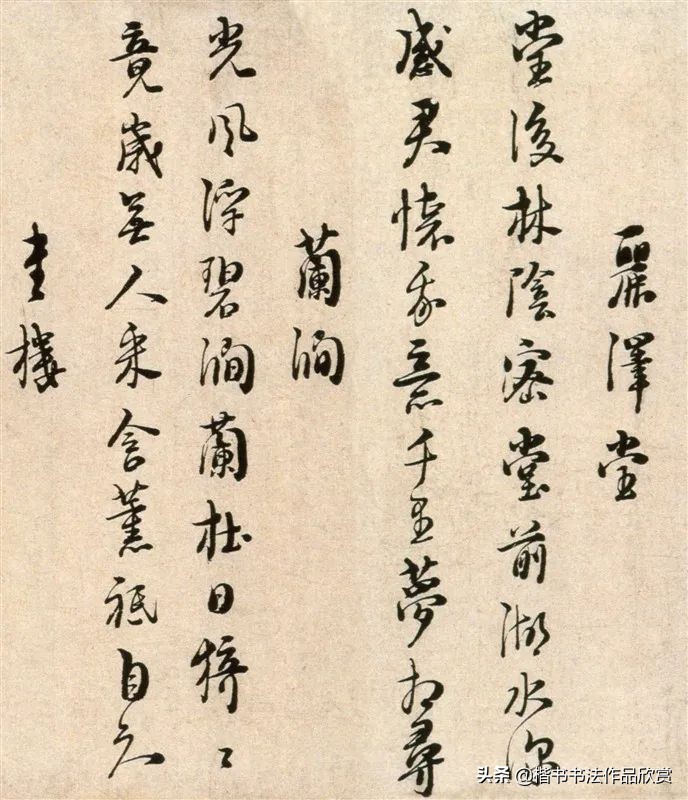 麗澤堂
堂後林陰密堂前湖水深
感君懷我意千里夢相尋
蘭澗
光風浮碧澗蘭杜日猗〻
竟歲無人采含薰祗自知
書樓
头条 @楷书书法作品欣赏